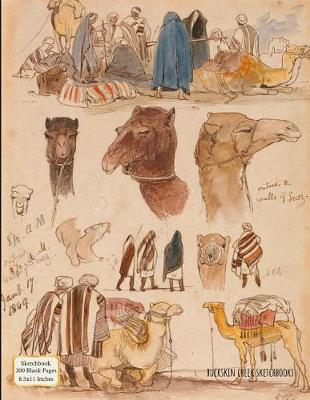 outside the
walls of Suez
8 A.M.
8 A.M.
17
1849
Sketchbook
200 Blank Pages
8.5x11 Inches
BUCKSKIN CREEK SKETCHBOOKS